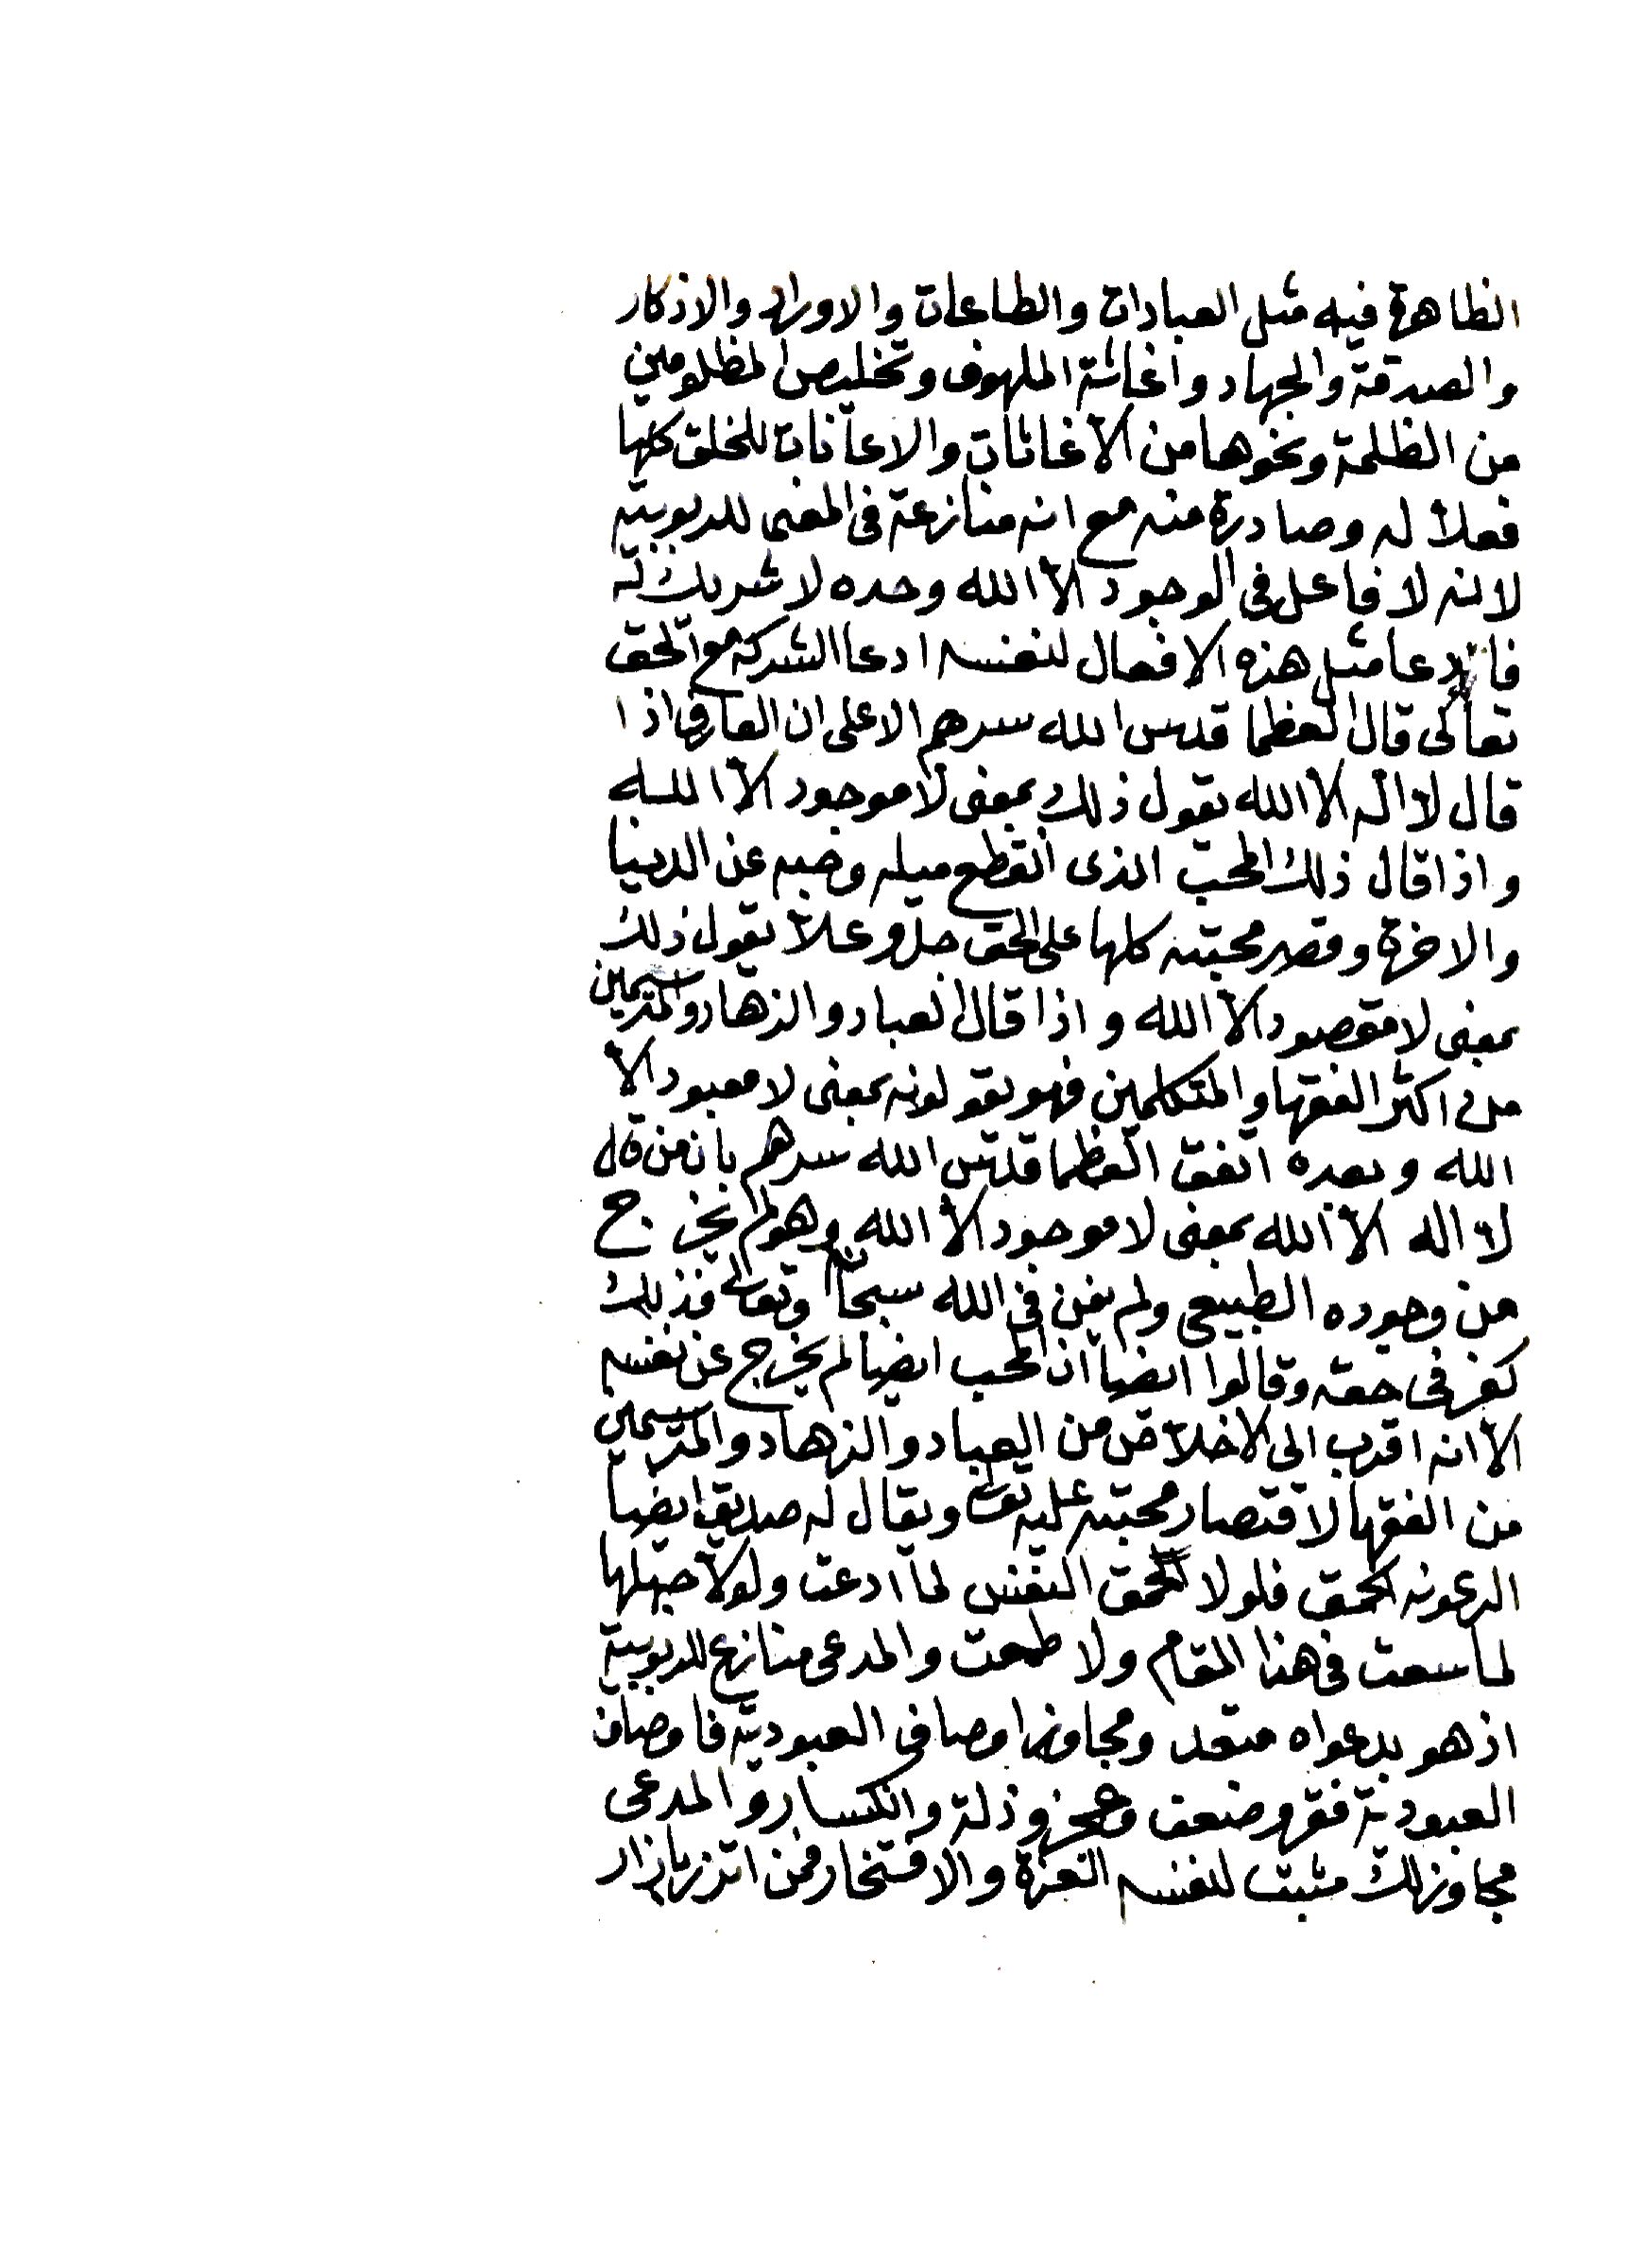 الظاهرة فيه مثل العبادات والطاعات والاوراد والاذكار
والصدقة والجهاد واغاثة الملهوف وتخليص المظلومين
من الظلمة ونحوها من الاغاثات والاعانات للخلق كلها
فعلا له وصادرة منه مع انه منازعة فى المعنى للربوبية
لانه لا فاعل فى الوجود الا الله وحده لا شريك له
فادعا مثل هذه الافعال لنفسه ادعا الشركة مع الحق
تعالى قال العظما قدس الله سرهم الاعلى ان العارف اذا
قال لا اله الا الله يقول ذلك بمعنى لا موجود الا الله
واذا قال ذلك المحب الذى انقطع ميله وحبه عن الدنيا
والاخرة وقصر محبته كلها على الحق جل وعلا يقول ذلك
بمعنى لا مقصود الا الله واذا قال العباد والزهاد والمترسمين
من اكثر الفقها والمتكلمين فهو يقولونه بمعنى لا معبود الا
الله وبعده اتفق العظما قدس الله سرهم بان من قال
لا اله الا الله بمعنى لا موجود الا الله وهو لم يخرج
من وجوده الطبيعى ولم يفن فى الله سبحانه وتعالى فذلك
كفر فى حقه وقالوا ايضا ان المحب ايضا لم يخرج عن نفسه
الا انه اقرب الى الاخلاص من العباد والزهاد والمترسمين
من الفقها لاقتصار محبته عليه تعالى ويقال له صديق ايضا
الرعونه الحمق فلولا الحمق النفس لما ادعت ولولا جهلها
لما سعت فى هذا المقام ولا طمحت والمدعى منازع للربوبية
اذ هو بدعواه متعد ومجاوز اوصافى العبودية فاوصاف
العبودية فقر وضعف وعجز وذلة وانكسار والمدعى
مجاوز لك مثبت لنفسه العزة والافتخار فمن اتزر بازار